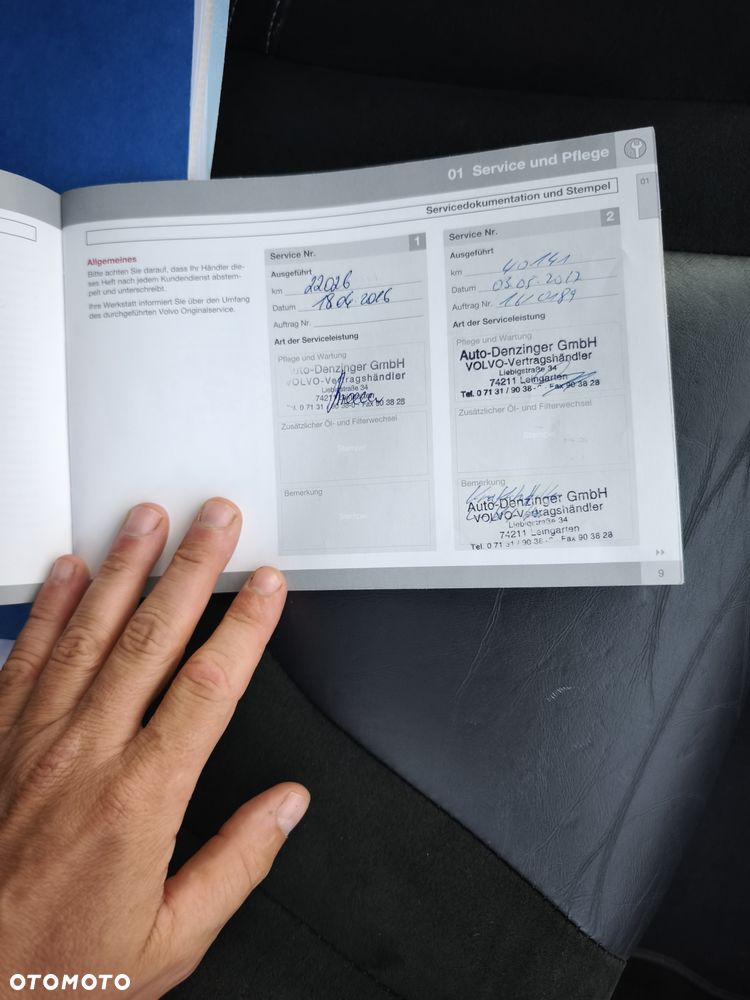 01 Service und Pflege
01
Servicedokumentation und Stempel
Allgemeines
Bitte achten Sie darauf, dass Ihr Händler die-
ses Heft nach jedem Kundendienst abstem-
pelt und unterschreibt.
Ihre Werkstatt informiert Sie über den Umfang
des durchgeführten Volvo Originalservice.
Service Nr. 1
Ausgeführt
km 22026
Datum 18.04.2016
Auftrag Nr.
Art der Serviceleistung
Pflege und Wartung
Auto-Denzinger GmbH
VOLVO-Vertragshändler
Liebigstraße 34
74211 Leingarten
Tel. 0 71 31 / 90 38-0 - Fax 90 38 28
Zusätzlicher Öl- und Filterwechsel
Stempel
Bemerkung
Stempel
Service Nr. 2
Ausgeführt
km 40141
Datum 03.05.2017
Auftrag Nr. 1610189
Art der Serviceleistung
Pflege und Wartung
Auto-Denzinger GmbH
VOLVO-Vertragshändler
Liebigstraße 34
74211 Leingarten
Tel. 0 71 31 / 90 38-0 Fax 90 38 28
Zusätzlicher Öl- und Filterwechsel
Stempel
Bemerkung
Auto-Denzinger GmbH
VOLVO-Vertragshändler
Liebigstraße 34
74211 Leingarten
Tel. 0 71 31 / 90 38-0 - Fax 90 38 28
9
OTOMOTO